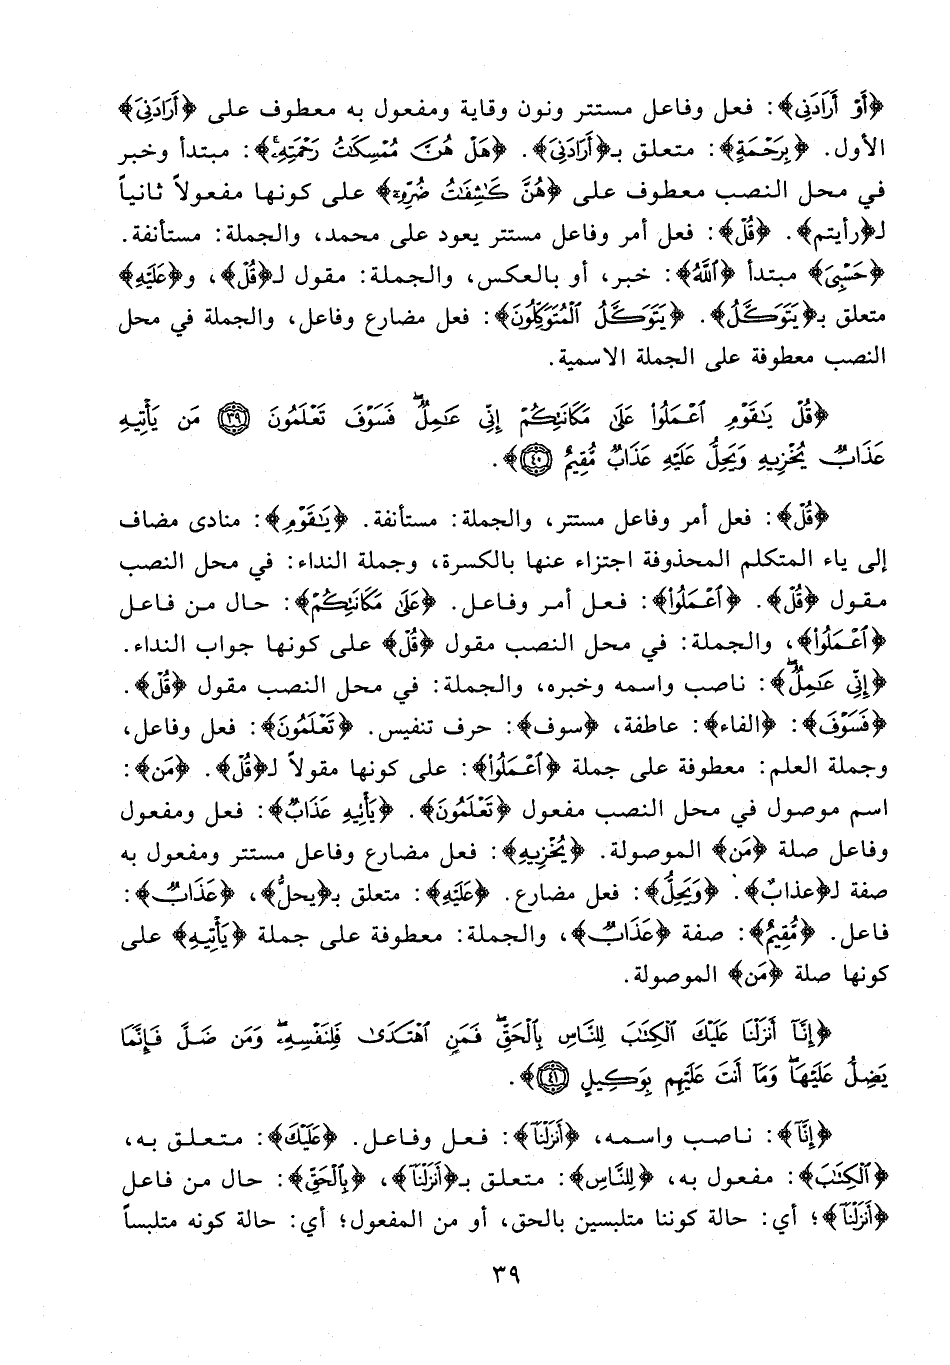 ﴿أَوْ أَرَادَنِي﴾: فعل وفاعل مستتر ونون وقاية ومفعول به معطوف على ﴿أَرَادَنِيَ﴾
الأول. ﴿بِرَحْمَةٍ﴾: متعلق بـ﴿أَرَادَنِيَ﴾. ﴿هَلْ هُنَّ مُمْسِكَاتُ رَحْمَتِهِ﴾: مبتدأ وخبر
في محل النصب معطوف على ﴿هُنَّ كَاشِفَاتُ ضُرِّهِ﴾ على كونها مفعولاً ثانياً
لـ﴿رأيتم﴾. ﴿قُلْ﴾: فعل أمر وفاعل مستتر يعود على محمد، والجملة: مستأنفة.
﴿حَسْبِيَ﴾ مبتدأ ﴿اللَّهُ﴾: خبر، أو بالعكس، والجملة: مقول لـ﴿قُلْ﴾، و﴿عَلَيْهِ﴾
متعلق بـ﴿يَتَوَكَّلُ﴾. ﴿يَتَوَكَّلُ الْمُتَوَكِّلُونَ﴾: فعل مضارع وفاعل، والجملة في محل
النصب معطوفة على الجملة الاسمية.
﴿قُلْ يَٰقَوْمِ ٱعْمَلُوا۟ عَلَىٰ مَكَانَتِكُمْ إِنِّي عَٰمِلٌ ۖ فَسَوْفَ تَعْلَمُونَ ٣٩ مَن يَأْتِيهِ
عَذَابٌ يُخْزِيهِ وَيَحِلُّ عَلَيْهِ عَذَابٌ مُّقِيمٌ ٤٠﴾.
﴿قُلْ﴾: فعل أمر وفاعل مستتر، والجملة: مستأنفة. ﴿يَٰقَوْمِ﴾: منادى مضاف
إلى ياء المتكلم المحذوفة اجتزاء عنها بالكسرة، وجملة النداء: في محل النصب
مقول ﴿قُلْ﴾. ﴿ٱعْمَلُوا۟﴾: فعل أمر وفاعل. ﴿عَلَىٰ مَكَانَتِكُمْ﴾: حال من فاعل
﴿ٱعْمَلُوا۟﴾، والجملة: في محل النصب مقول ﴿قُلْ﴾ على كونها جواب النداء.
﴿إِنِّي عَٰمِلٌ ۖ﴾: ناصب واسمه وخبره، والجملة: في محل النصب مقول ﴿قُلْ﴾.
﴿فَسَوْفَ﴾: ﴿الفاء﴾: عاطفة، ﴿سوف﴾: حرف تنفيس. ﴿تَعْلَمُونَ﴾: فعل وفاعل،
وجملة العلم: معطوفة على جملة ﴿ٱعْمَلُوا۟﴾: على كونها مقولاً لـ﴿قُلْ﴾. ﴿مَن﴾:
اسم موصول في محل النصب مفعول ﴿تَعْلَمُونَ﴾. ﴿يَأْتِيهِ عَذَابٌ﴾: فعل ومفعول
وفاعل صلة ﴿مَن﴾ الموصولة. ﴿يُخْزِيهِ﴾: فعل مضارع وفاعل مستتر ومفعول به
صفة لـ﴿عذابٌ﴾. ﴿وَيَحِلُّ﴾: فعل مضارع. ﴿عَلَيْهِ﴾: متعلق بـ﴿يحلُّ﴾، ﴿عَذَابٌ﴾:
فاعل. ﴿مُّقِيمٌ﴾: صفة ﴿عَذَابٌ﴾، والجملة: معطوفة على جملة ﴿يَأْتِيهِ﴾ على
كونها صلة ﴿مَن﴾ الموصولة.
﴿إِنَّآ أَنزَلْنَا عَلَيْكَ ٱلْكِتَٰبَ لِلنَّاسِ بِٱلْحَقِّ ۖ فَمَنِ ٱهْتَدَىٰ فَلِنَفْسِهِۦ ۖ وَمَن ضَلَّ فَإِنَّمَا
يَضِلُّ عَلَيْهَا ۖ وَمَآ أَنتَ عَلَيْهِم بِوَكِيلٍ ٤١﴾.
﴿إِنَّآ﴾: ناصب واسمه، ﴿أَنزَلْنَا﴾: فعل وفاعل. ﴿عَلَيْكَ﴾: متعلق به،
﴿ٱلْكِتَٰبَ﴾: مفعول به، ﴿لِلنَّاسِ﴾: متعلق بـ﴿أَنزَلْنَآ﴾، ﴿بِٱلْحَقِّ﴾: حال من فاعل
﴿أَنزَلْنَآ﴾؛ أي: حالة كوننا متلبسين بالحق، أو من المفعول؛ أي: حالة كونه متلبساً
٣٩